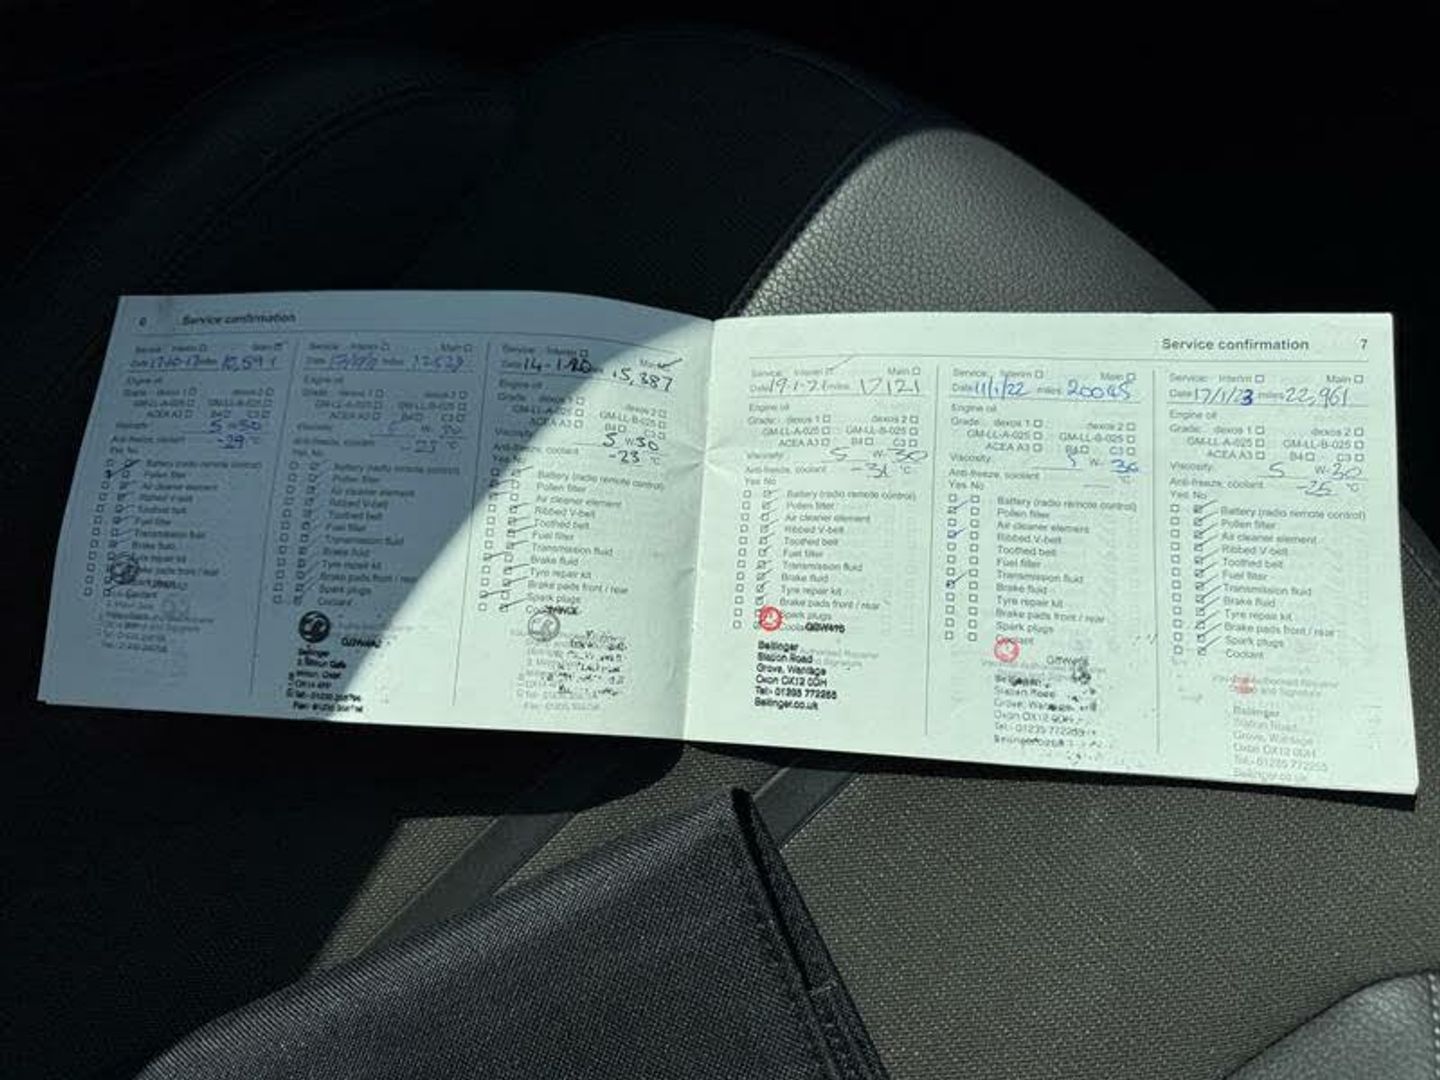 6 Service confirmation
Service: Interim Main
Date 17-10-17 miles 10,591
Engine oil
Grade: dexos 1 dexos 2
GM-LL-A-025 GM-LL-B-025
ACEA A3 B4 C3
Viscosity: 5 - 30
Anti-freeze, coolant -29 °C
Yes No
Battery (radio remote control)
Pollen filter
Air cleaner element
Ribbed V-belt
Toothed belt
Fuel filter
Transmission fluid
Brake fluid
Tyre repair kit
Brake pads front / rear
Spark plugs
Coolant
Service: Interim Main
Date miles
Engine oil
Grade: dexos 1 dexos 2
GM-LL-A-025 GM-LL-B-025
ACEA A3 B4 C3
Viscosity: W-30
Anti-freeze, coolant °C
Yes No
Battery (radio remote control)
Pollen filter
Air cleaner element
Ribbed V-belt
Toothed belt
Fuel filter
Transmission fluid
Brake fluid
Tyre repair kit
Brake pads front / rear
Spark plugs
Coolant
Bellinger
Service: Interim Main
Date 14-1-20 15,387
Engine oil
Grade: dexos 1 dexos 2
GM-LL-A-025 GM-LL-B-025
ACEA A3 B4 C3
Viscosity: 5 W-30
Anti-freeze, coolant -23 °C
Yes No
Battery (radio remote control)
Pollen filter
Air cleaner element
Ribbed V-belt
Toothed belt
Fuel filter
Transmission fluid
Brake fluid
Tyre repair kit
Brake pads front / rear
Spark plugs
Coolant
Service confirmation 7
Service: Interim Main
Date 19-1-21 miles 17121
Engine oil
Grade: dexos 1 dexos 2
GM-LL-A-025 GM-LL-B-025
ACEA A3 B4 C3
Viscosity: 5 W-30
Anti-freeze, coolant °C
Yes No
Battery (radio remote control)
Pollen filter
Air cleaner element
Ribbed V-belt
Toothed belt
Fuel filter
Transmission fluid
Brake fluid
Tyre repair kit
Brake pads front / rear
Spark plugs
Coolant
Bellinger
Station Road
Grove, Wantage
Oxon OX12 0DH
Tel:- 01235 772255
Bellinger.co.uk
Service: Interim Main
Date 11/1/22 miles 20085
Engine oil
Grade: dexos 1 dexos 2
GM-LL-A-025 GM-LL-B-025
ACEA A3 B4 C3
Viscosity: 5 W- 30
Anti-freeze, coolant °C
Yes No
Battery (radio remote control)
Pollen filter
Air cleaner element
Ribbed V-belt
Toothed belt
Fuel filter
Transmission fluid
Brake fluid
Tyre repair kit
Brake pads front / rear
Spark plugs
Coolant
Station Road
Grove,
Oxon OX12 0DH
Service: Interim Main
Date 17/1/23 miles 22,961
Engine oil
Grade: dexos 1 dexos 2
GM-LL-A-025 GM-LL-B-025
ACEA A3 B4 C3
Viscosity: 5 W-30
Anti-freeze, coolant -25 °C
Yes No
Battery (radio remote control)
Pollen filter
Air cleaner element
Ribbed V-belt
Toothed belt
Fuel filter
Transmission fluid
Brake fluid
Tyre repair kit
Brake pads front / rear
Spark plugs
Coolant
Bellinger
Station Road
Grove, Wantage
Oxon OX12 0DH
Tel:- 01235 772255
Bellinger.co.uk